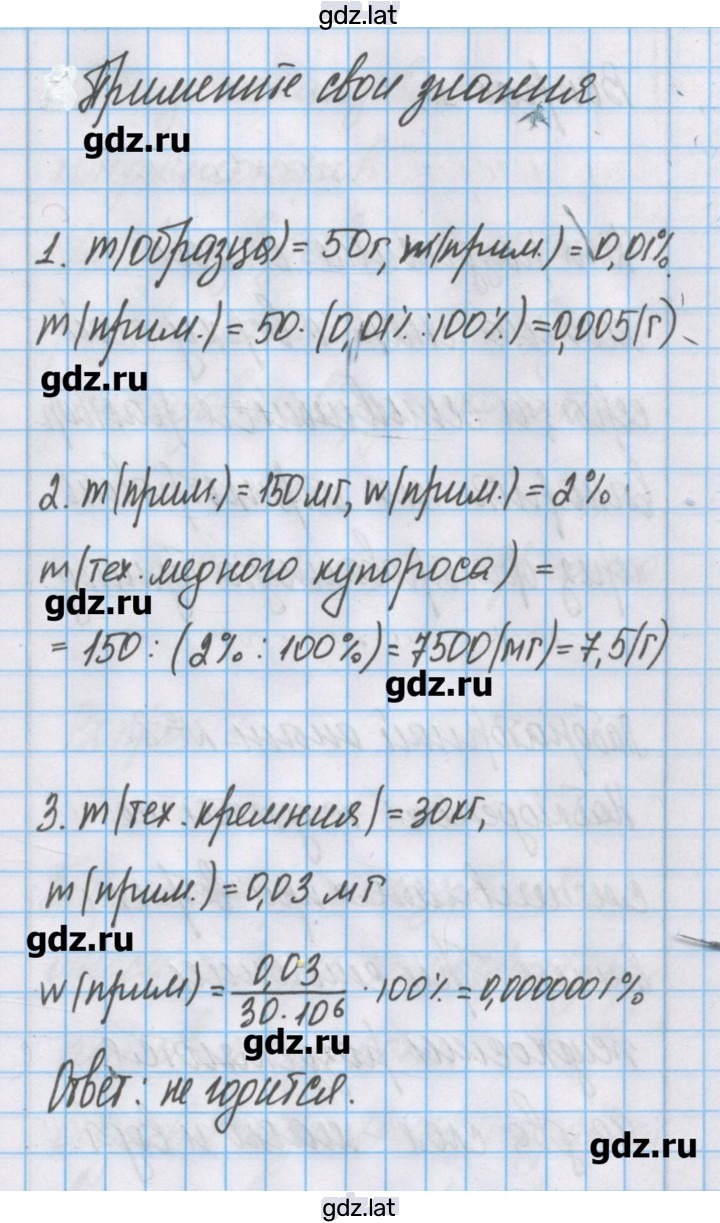 gdz.lat
Примените свои знания
gdz.ru
1. m(образца) = 50г, m(прим.) = 0,01%
m(прим.) = 50·(0,01% : 100%) = 0,005(г)
gdz.ru
2. m(прим.) = 150мг, w(прим.) = 2%
m(тех. медного купороса) =
gdz.ru
= 150 : (2% : 100%) = 7500(мг) = 7,5(г)
gdz.ru
3. m(тех. кремния) = 30кг,
m(прим.) = 0,03 мг
gdz.ru
w(прим) = 0,03 / 30·10⁶ · 100% = 0,0000001%
gdz.ru
Ответ: не годится.
gdz.ru
gdz.lat